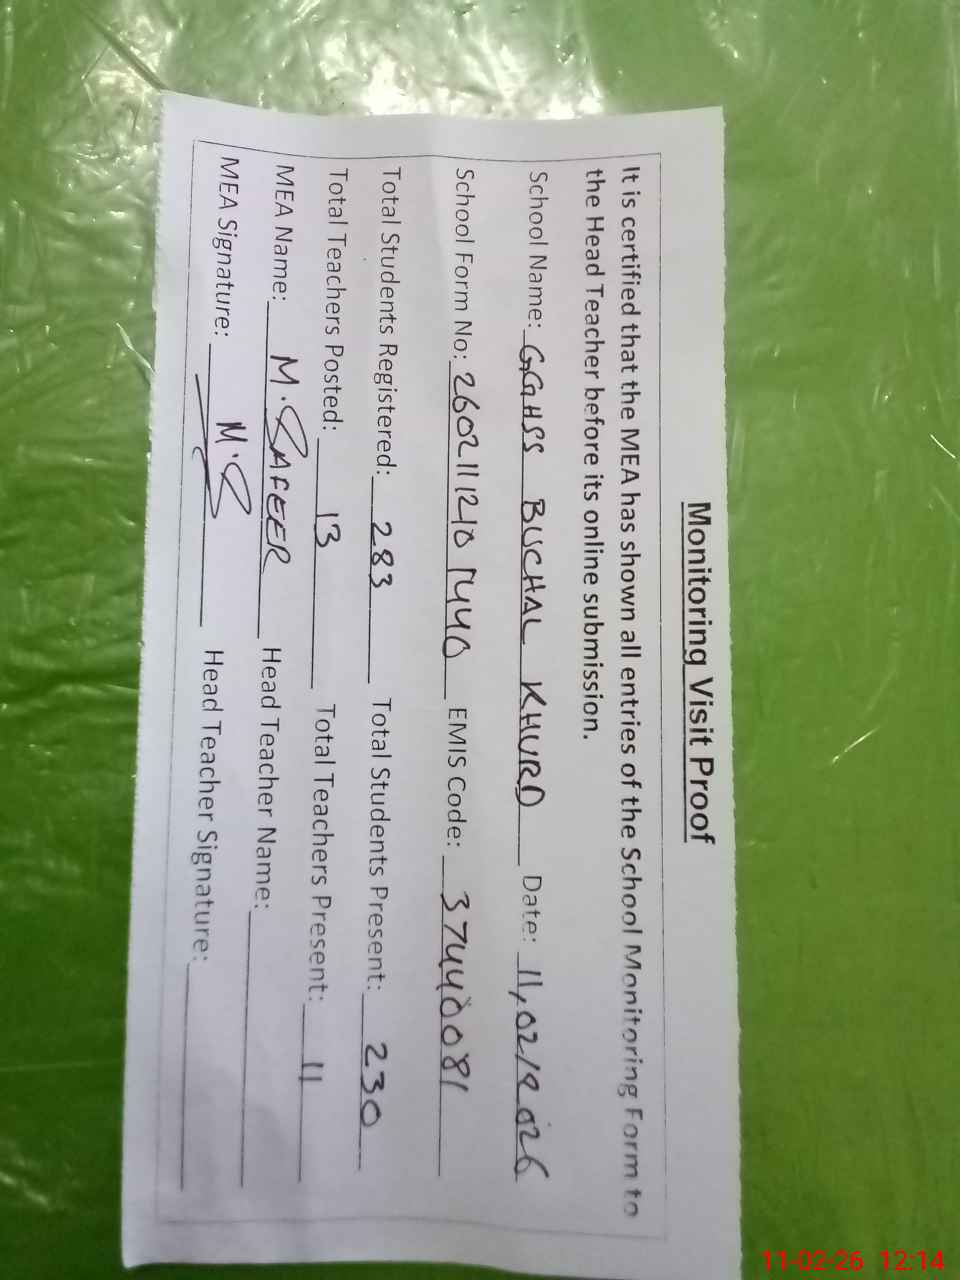 Monitoring Visit Proof
It is certified that the MEA has shown all entries of the School Monitoring Form to
the Head Teacher before its online submission.
School Name: GGHSS BUCHAL KHURD Date: 11/02/2026
School Form No: EMIS Code: 37440081
Total Students Registered: 283 Total Students Present: 230
Total Teachers Posted: 13 Total Teachers Present: 11
MEA Name: M. SAFEER Head Teacher Name:
MEA Signature: M.S Head Teacher Signature:
11-02-26 12:14